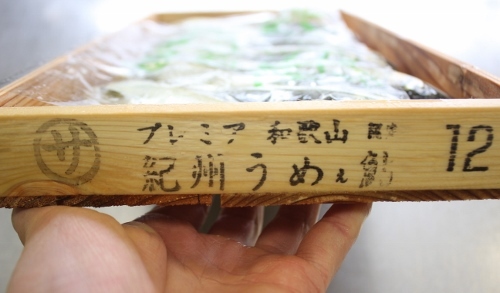 サ
プレミア 和歌山
紀州うめぇ
12